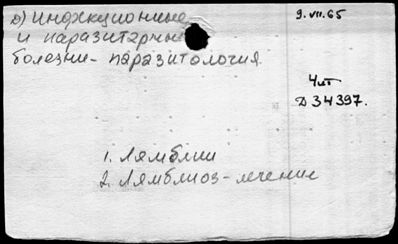 д) Инфекционные
и паразитарные
болезни - паразитология.
9.VII.65
Чит
Д 34397.
1. Лямблии
2. Лямблиоз - лечение